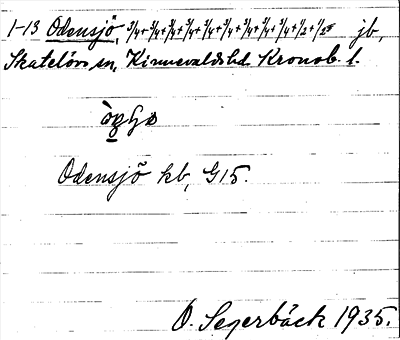 1-13 Odensjö, 3/4+3/4+3/4+3/4+3/4+3/4+3/4+3/4+3/4+1/2+1/2 jb,
Skatelövs sn, Kinnevalds hd Kronob. l.
Odensjö kb, G15.
O. Segerbäck 1935.